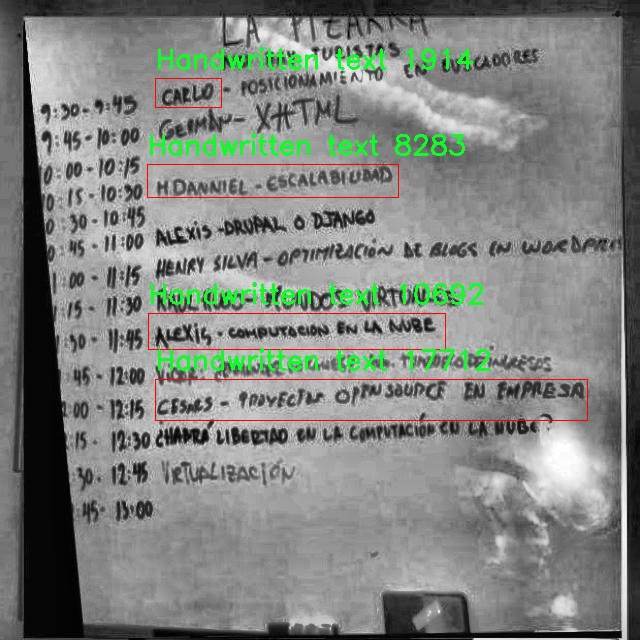 LA PIZARRA
Handwritten text 1914
9:30-9:45 CARLO - POSICIONAMIENTO EN BUSCADORES
9:45-10:00 GERMÁN - XHTML
Handwritten text 8283
0:00-10:15
0:15-10:30 H.DANNIEL - ESCALABILIDAD
0:30-10:45
0:45-11:00 ALEXIS - DRUPAL O DJANGO
:00-11:15 HENRY SILVA - OPTIMIZACIÓN DE BLOGS EN WORDPRES
Handwritten text 10692
:15-11:30 MUNDOS VIRTUALES
:30-11:45 ALEXIS - COMPUTACION EN LA NUBE
Handwritten text 17712
:45-12:00
:00-12:15 CESNES - PROYECTOS OPENSOURCE EN EMPRESA
:15-12:30 CHABRÁ LIBERTAD EN LA COMPUTACIÓN EN LA NUBE?
:30-12:45 VIRTUALIZACIÓN
:45-13:00